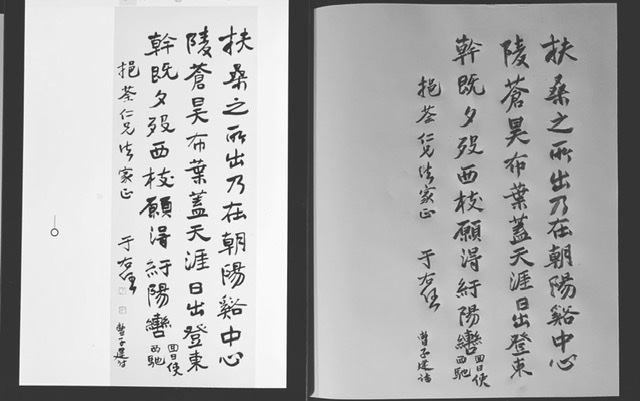 扶桑之所出乃在朝陽谿中心
陵蒼昊布葉蓋天涯日出登東
幹既夕歿西枝願淂紆陽轡
回日使
西馳
挹荃仁兄法家正
于右任
曹子建詩
扶桑之所出乃在朝陽谿中心
陵蒼昊布葉蓋天涯日出登東
幹既夕歿西枝願淂紆陽轡
回日使
西馳
挹荃仁兄法家正
于右任
曹子建詩